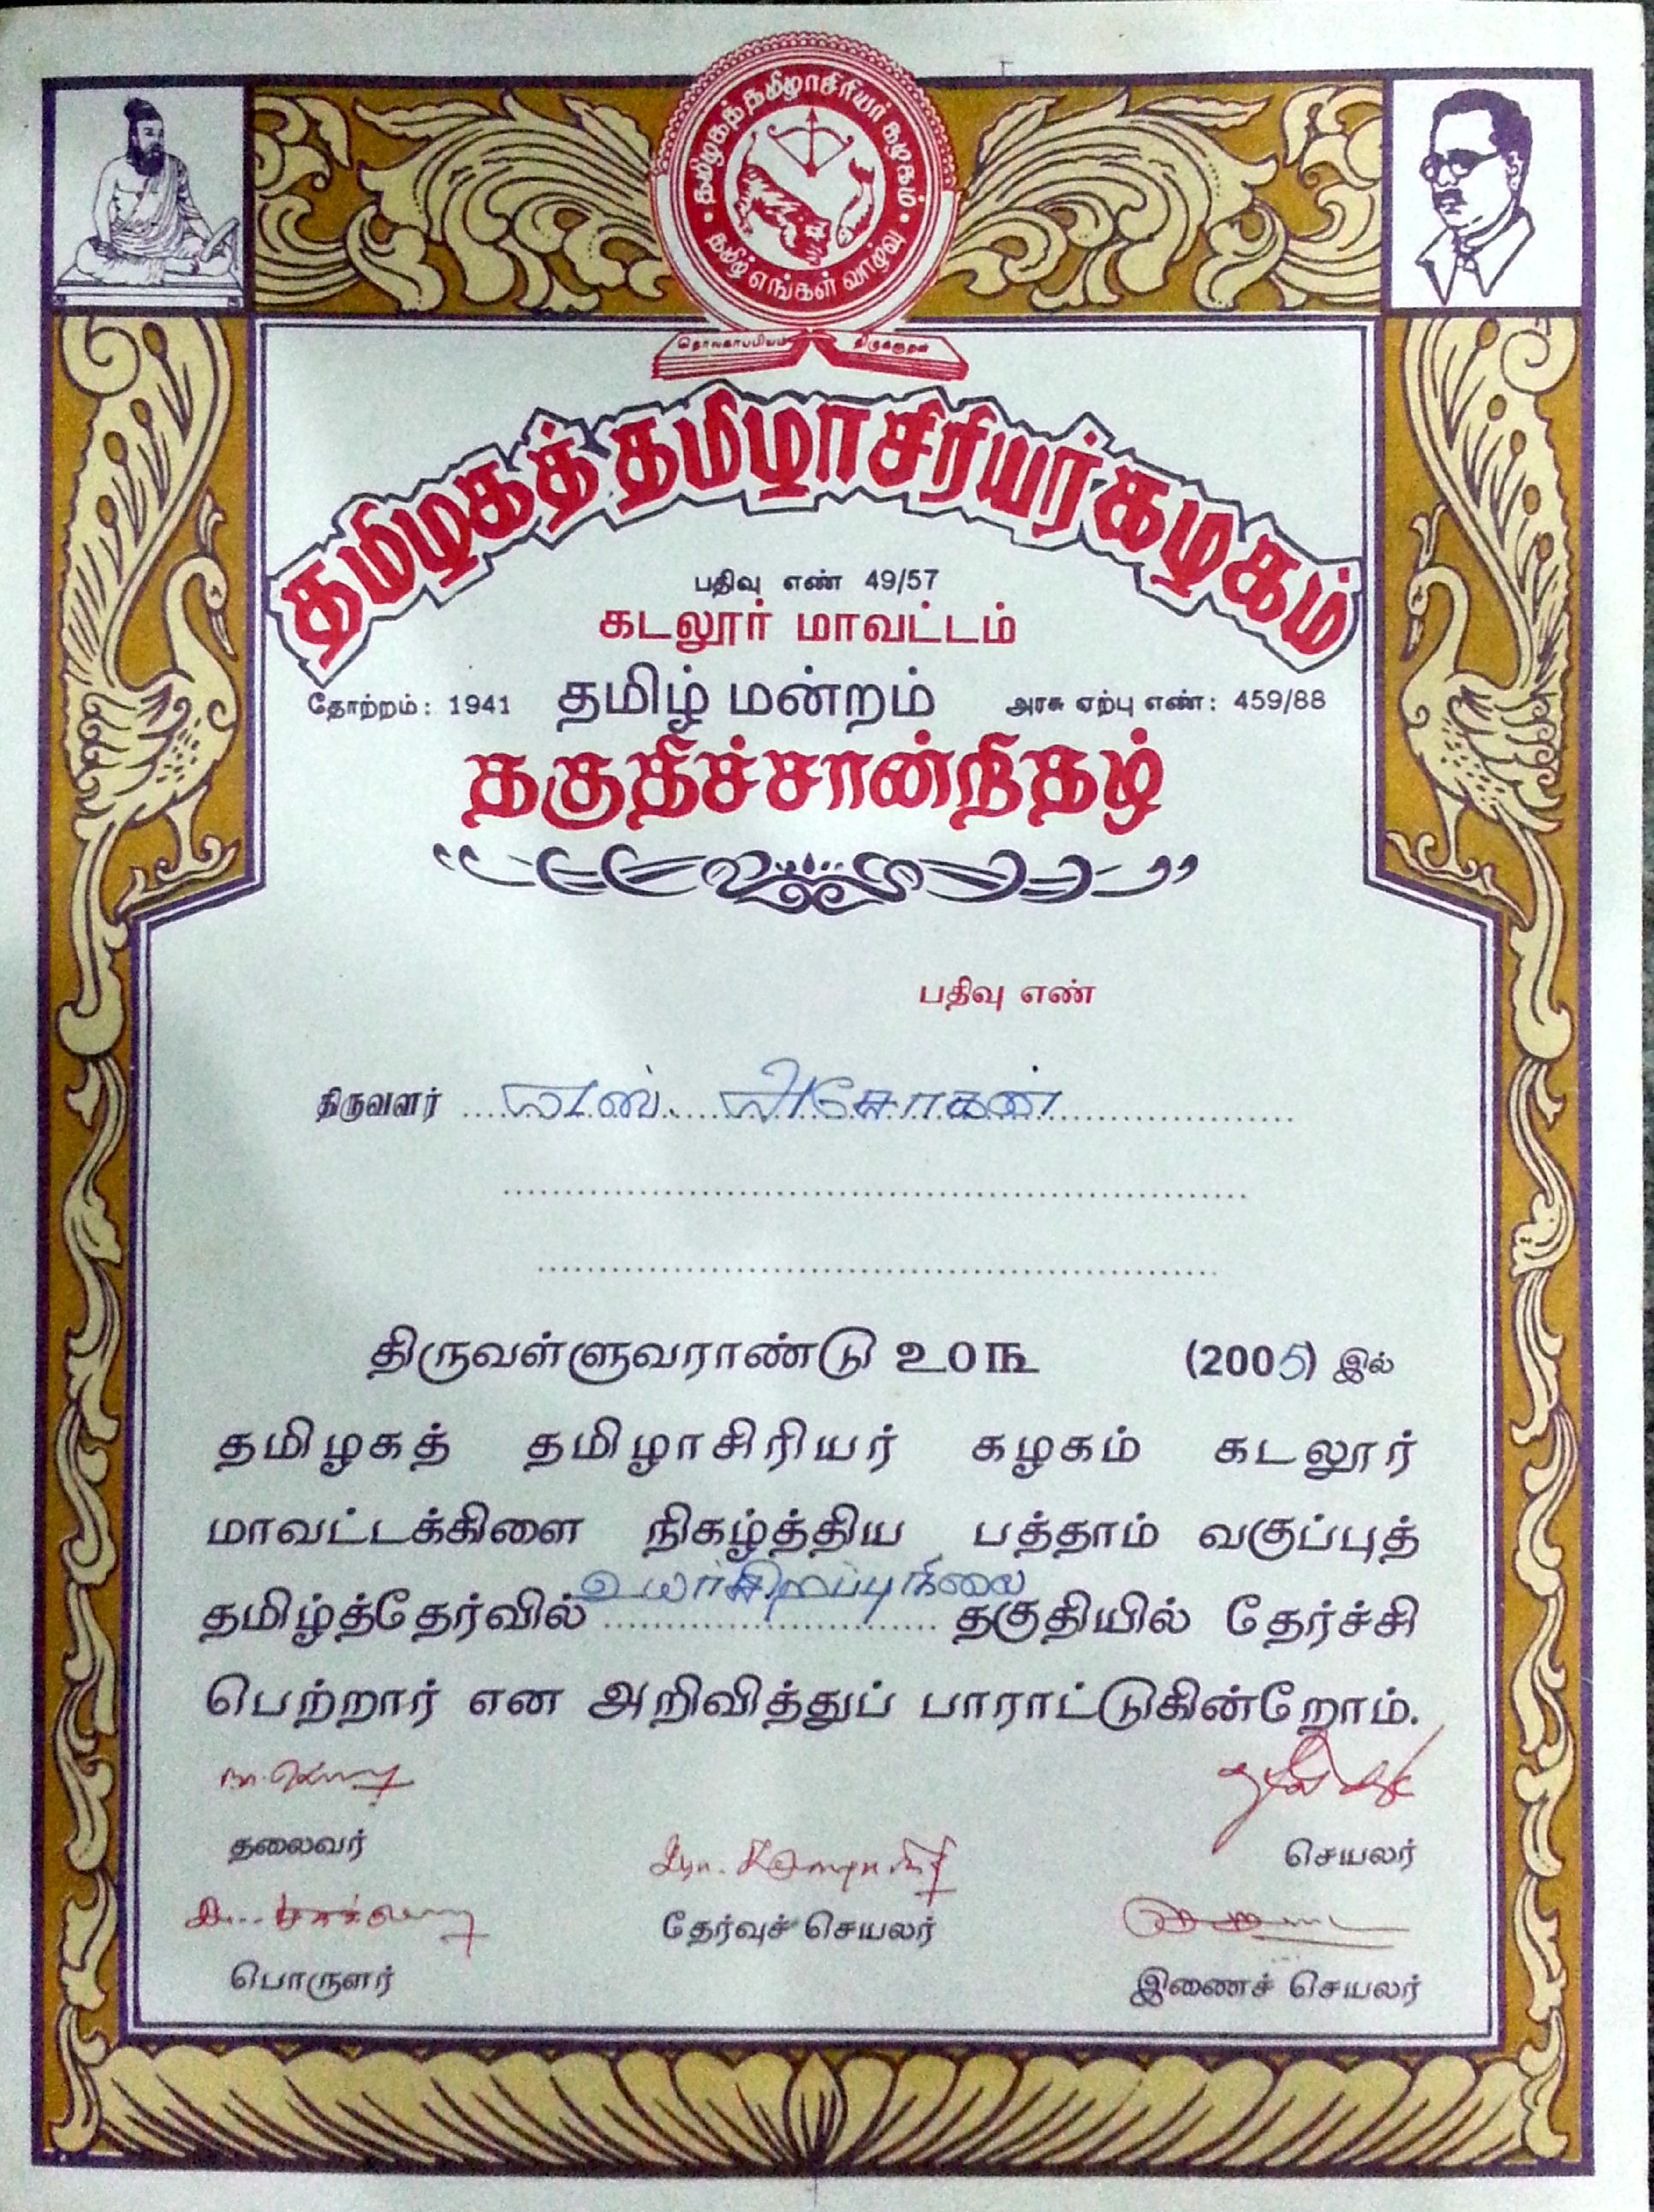 தமிழகத் தமிழாசிரியர் கழகம்
தமிழ் எங்கள் வாழ்வு
தொல்காப்பியம் திருக்குறள்
தமிழகத் தமிழாசிரியர் கழகம்
பதிவு எண் 49/57
கடலூர் மாவட்டம்
தோற்றம்: 1941 தமிழ் மன்றம் அரசு ஏற்பு எண்: 459/88
தகுதிச்சான்றிதழ்
பதிவு எண்
திருவளர் எஸ். அசோகன்
திருவள்ளுவராண்டு ௨0௩ (2005) இல்
தமிழகத் தமிழாசிரியர் கழகம் கடலூர்
மாவட்டக்கிளை நிகழ்த்திய பத்தாம் வகுப்புத்
தமிழ்த்தேர்வில் உயர்சிறப்புநிலை தகுதியில் தேர்ச்சி
பெற்றார் என அறிவித்துப் பாராட்டுகின்றோம்.
தலைவர்
செயலர்
தேர்வுச் செயலர்
பொருளர்
இணைச் செயலர்